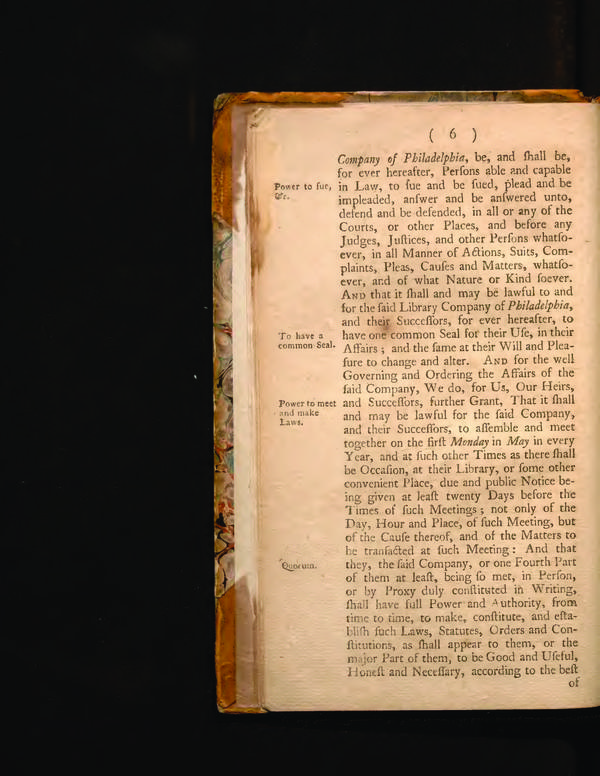 ( 6 )
Company of Philadelphia, be, and ſhall be,
for ever hereafter, Perſons able and capable
Power to ſue,
&c.
in Law, to ſue and be ſued, plead and be
impleaded, anſwer and be anſwered unto,
defend and be defended, in all or any of the
Courts, or other Places, and before any
Judges, Juſtices, and other Perſons whatſo-
ever, in all Manner of Actions, Suits, Com-
plaints, Pleas, Cauſes and Matters, whatſo-
ever, and of what Nature or Kind ſoever.
AND that it ſhall and may be lawful to and
for the ſaid Library Company of Philadelphia,
and their Succeſſors, for ever hereafter, to
To have a
common Seal.
have one common Seal for their Uſe, in their
Affairs ; and the ſame at their Will and Plea-
ſure to change and alter. AND for the well
Governing and Ordering the Affairs of the
ſaid Company, We do, for Us, Our Heirs,
Power to meet
and make
Laws.
and Succeſſors, further Grant, That it ſhall
and may be lawful for the ſaid Company,
and their Succeſſors, to aſſemble and meet
together on the firſt Monday in May in every
Year, and at ſuch other Times as there ſhall
be Occaſion, at their Library, or ſome other
convenient Place, due and public Notice be-
ing given at leaſt twenty Days before the
Times of ſuch Meetings ; not only of the
Day, Hour and Place, of ſuch Meeting, but
of the Cauſe thereof, and of the Matters to
be tranſacted at ſuch Meeting : And that
Quorum.
they, the ſaid Company, or one Fourth Part
of them at leaſt, being ſo met, in Perſon,
or by Proxy duly conſtituted in Writing,
ſhall have full Power and Authority, from
time to time, to make, conſtitute, and eſta-
bliſh ſuch Laws, Statutes, Orders and Con-
ſtitutions, as ſhall appear to them, or the
major Part of them, to be Good and Uſeful,
Honeſt and Neceſſary, according to the beſt
of